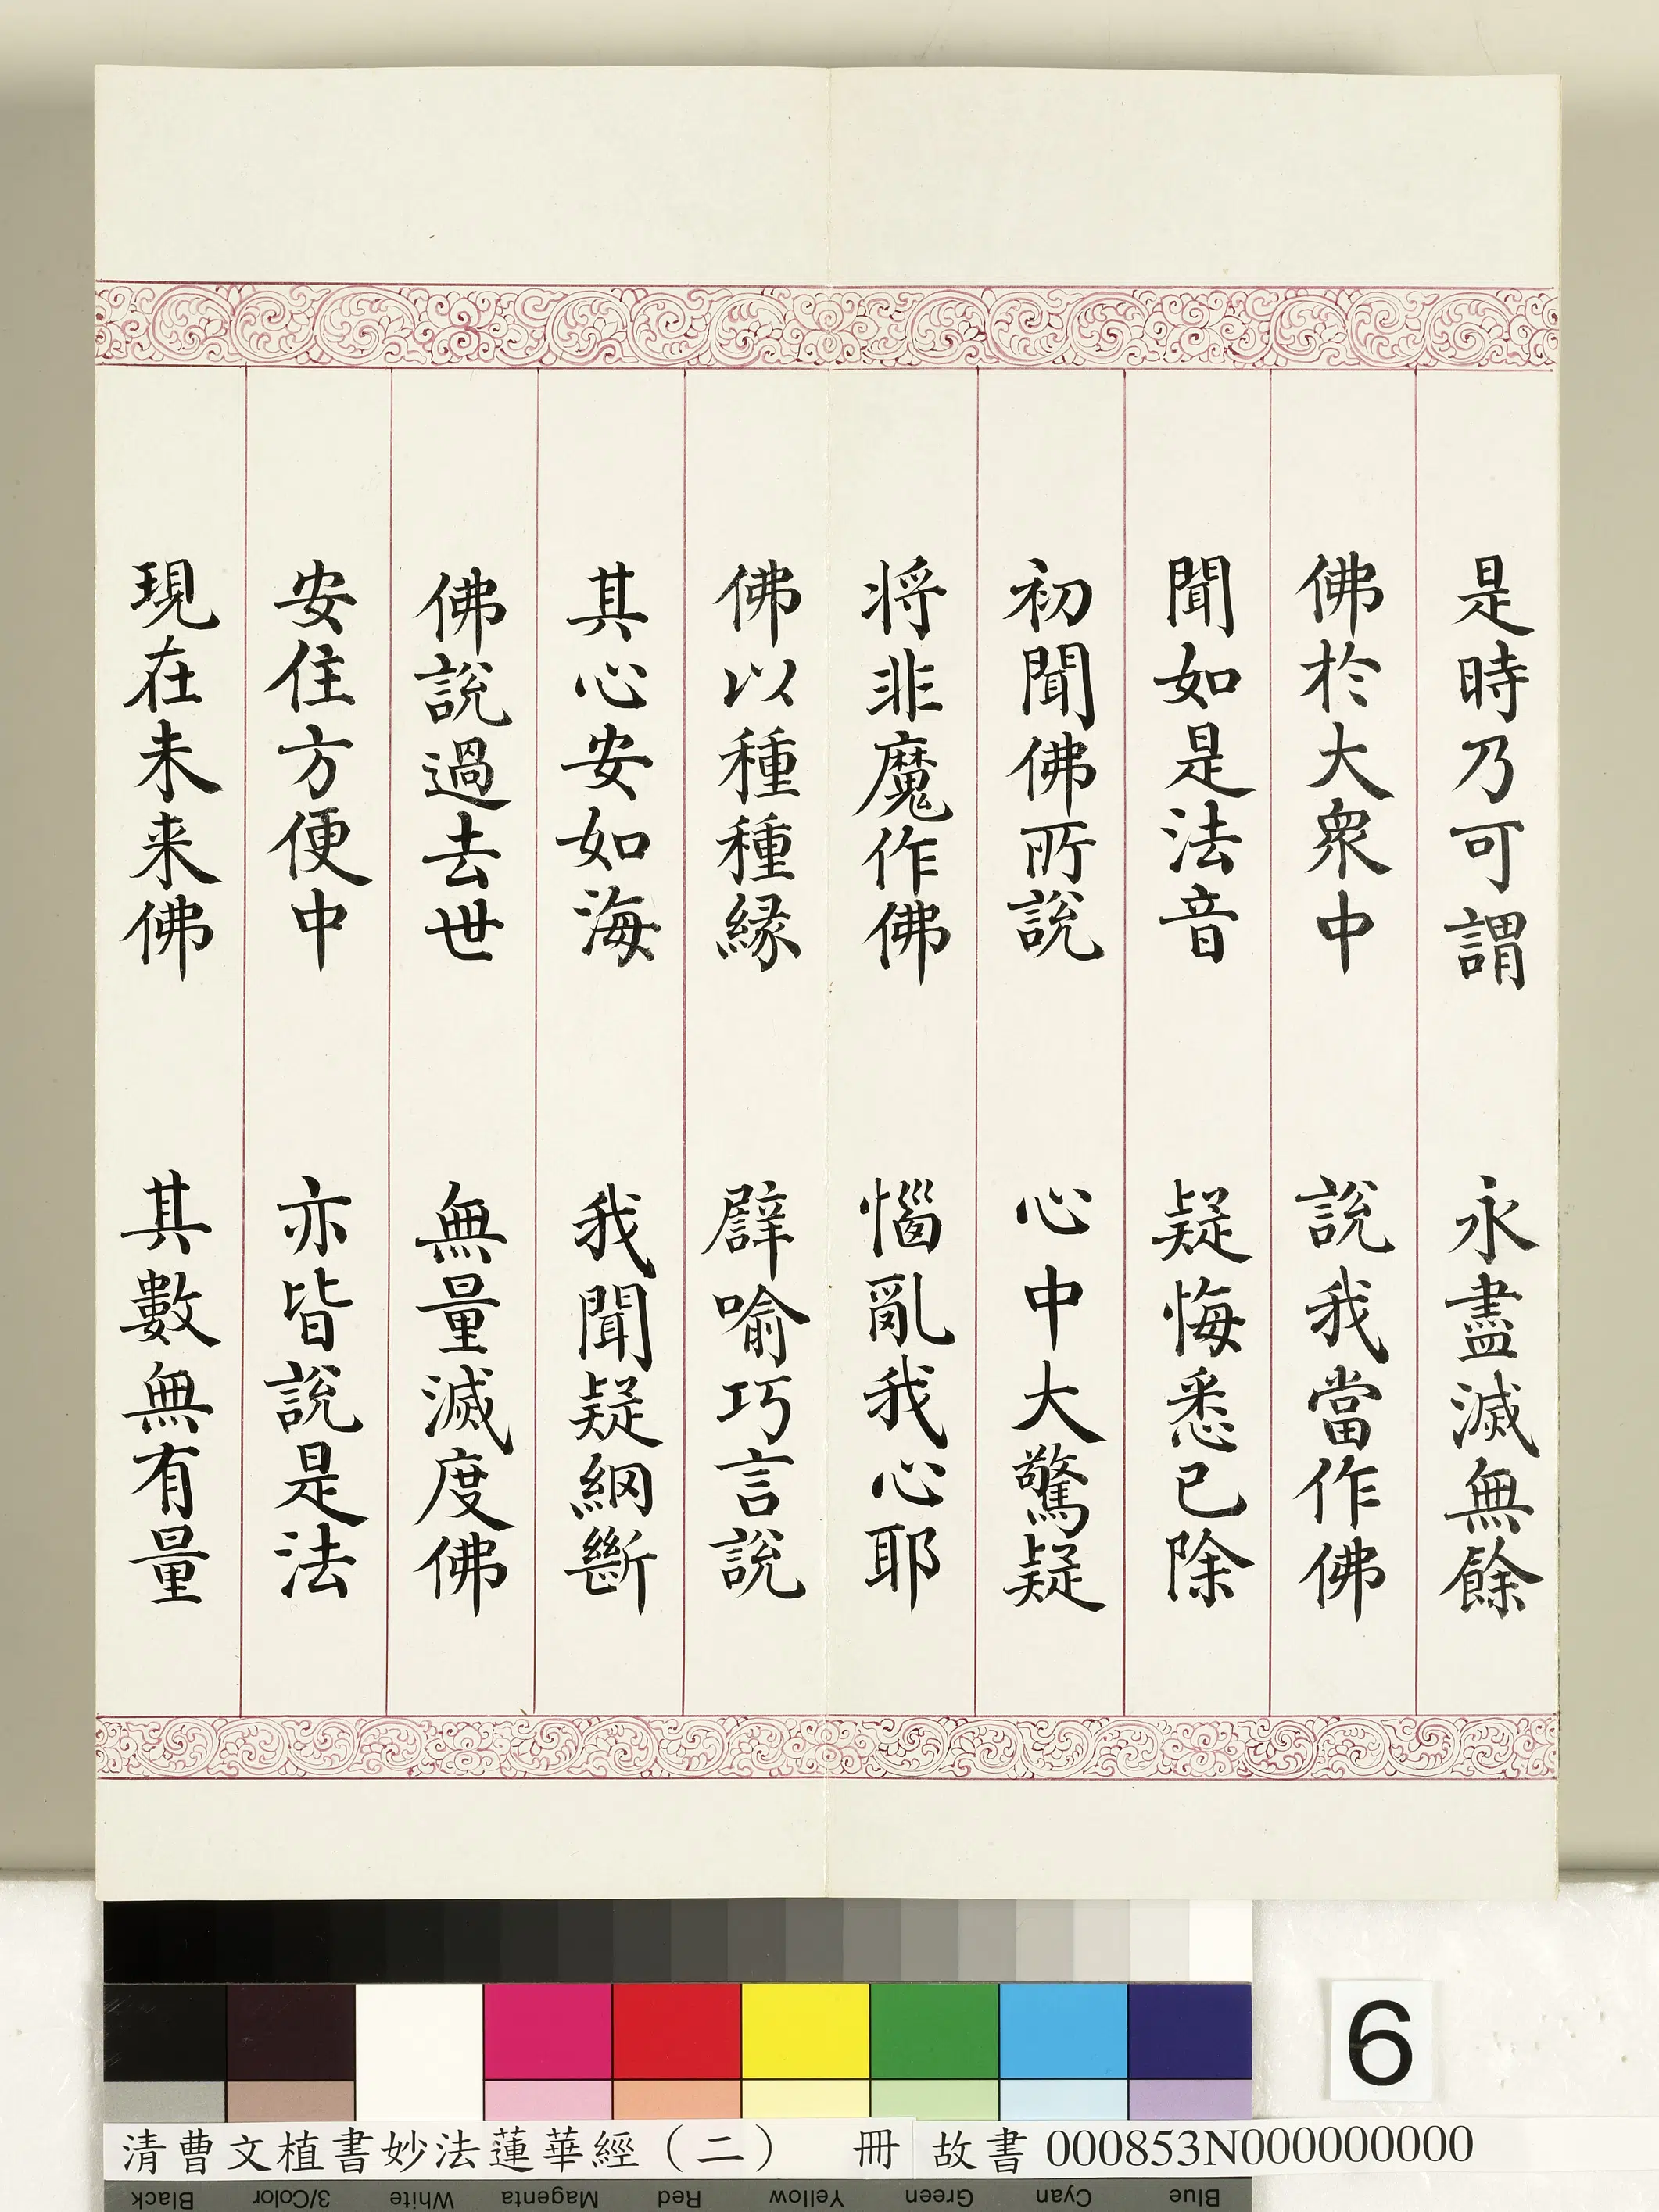 是時乃可謂　永盡滅無餘
佛於大眾中　說我當作佛
聞如是法音　疑悔悉已除
初聞佛所說　心中大驚疑
将非魔作佛　惱亂我心耶
佛以種種緣　譬喻巧言說
其心安如海　我聞疑網斷
佛說過去世　無量滅度佛
安住方便中　亦皆說是法
現在未来佛　其數無有量
6
清曹文植書妙法蓮華經（二）　冊　故書 000853N000000000
Black 3/Color White Magenta Red Yellow Green Cyan Blue